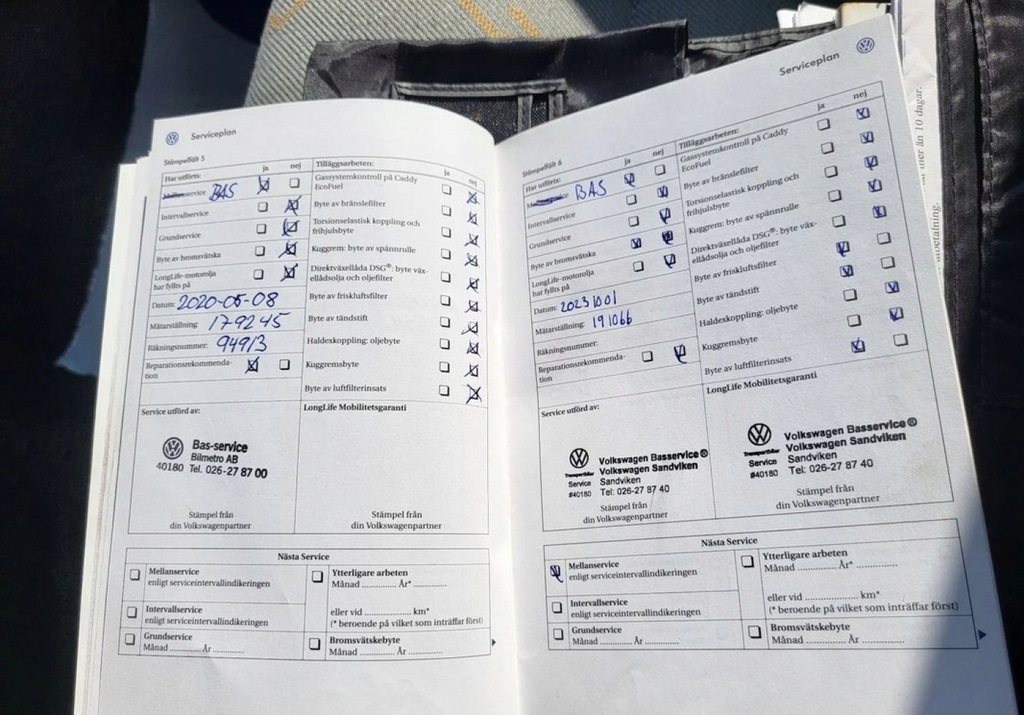 Serviceplan
Stämpelfält 5
Har utförts: ja nej
service BAS
Intervallservice
Grundservice
Byte av bromsvätska
LongLife-motorolja
har fyllts på
Datum: 2020-05-08
Mätarställning: 179245
Räkningsnummer: 94913
Reparationsrekommenda-
tion
Tilläggsarbeten: ja nej
Gassystemkontroll på Caddy
EcoFuel
Byte av bränslefilter
Torsionselastisk koppling och
frihjulsbyte
Kuggrem: byte av spännrulle
Direktväxellåda DSG®: byte väx-
ellådsolja och oljefilter
Byte av friskluftsfilter
Byte av tändstift
Haldexkoppling: oljebyte
Kuggremsbyte
Byte av luftfilterinsats
Service utförd av:
Bas-service
Bilmetro AB
40180 Tel. 026-27 87 00
Stämpel från
din Volkswagenpartner
LongLife Mobilitetsgaranti
Stämpel från
din Volkswagenpartner
Nästa Service
Mellanservice
enligt serviceintervallindikeringen
Intervallservice
enligt serviceintervallindikeringen
Grundservice
Månad ............ År ............
Ytterligare arbeten
Månad ............ År* ............
eller vid .................... km*
(* beroende på vilket som inträffar först)
Bromsvätskebyte
Månad ............ År ............
Serviceplan
Stämpelfält 6
Har utförts: ja nej
service BAS
Intervallservice
Grundservice
Byte av bromsvätska
LongLife-motorolja
har fyllts på
Datum: 20231001
Mätarställning: 191066
Räkningsnummer:
Reparationsrekommenda-
tion
Tilläggsarbeten: ja nej
Gassystemkontroll på Caddy
EcoFuel
Byte av bränslefilter
Torsionselastisk koppling och
frihjulsbyte
Kuggrem: byte av spännrulle
Direktväxellåda DSG®: byte väx-
ellådsolja och oljefilter
Byte av friskluftsfilter
Byte av tändstift
Haldexkoppling: oljebyte
Kuggremsbyte
Byte av luftfilterinsats
Service utförd av:
Volkswagen Basservice®
Transportbilar Volkswagen Sandviken
Service Sandviken
#40180 Tel: 026-27 87 40
Stämpel från
din Volkswagenpartner
LongLife Mobilitetsgaranti
Volkswagen Basservice®
Transportbilar Volkswagen Sandviken
Service Sandviken
#40180 Tel: 026-27 87 40
Stämpel från
din Volkswagenpartner
Nästa Service
Mellanservice
enligt serviceintervallindikeringen
Intervallservice
enligt serviceintervallindikeringen
Grundservice
Månad ............ År ............
Ytterligare arbeten
Månad ............ År* ............
eller vid .................... km*
(* beroende på vilket som inträffar först)
Bromsvätskebyte
Månad ............ År ............
mer än 10 dagar.